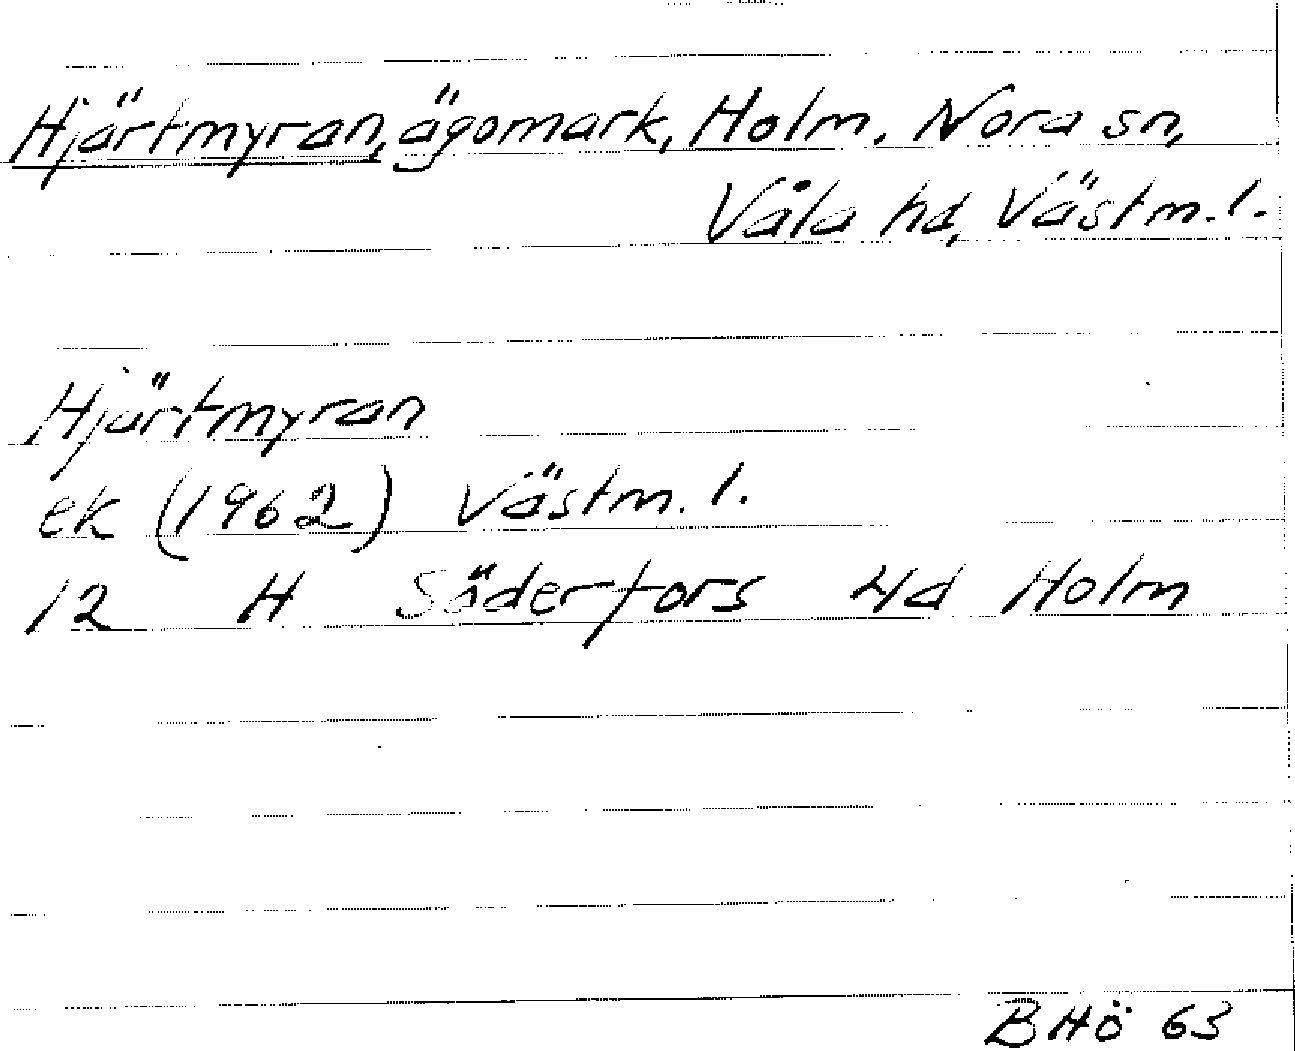 Hjärtmyran, ägomark, Holm. Nora sn,
Våla hd, Västm. l.
Hjärtmyran
ek (1962) Västm. l.
12 H Söderfors 4d Holm
BHö 63